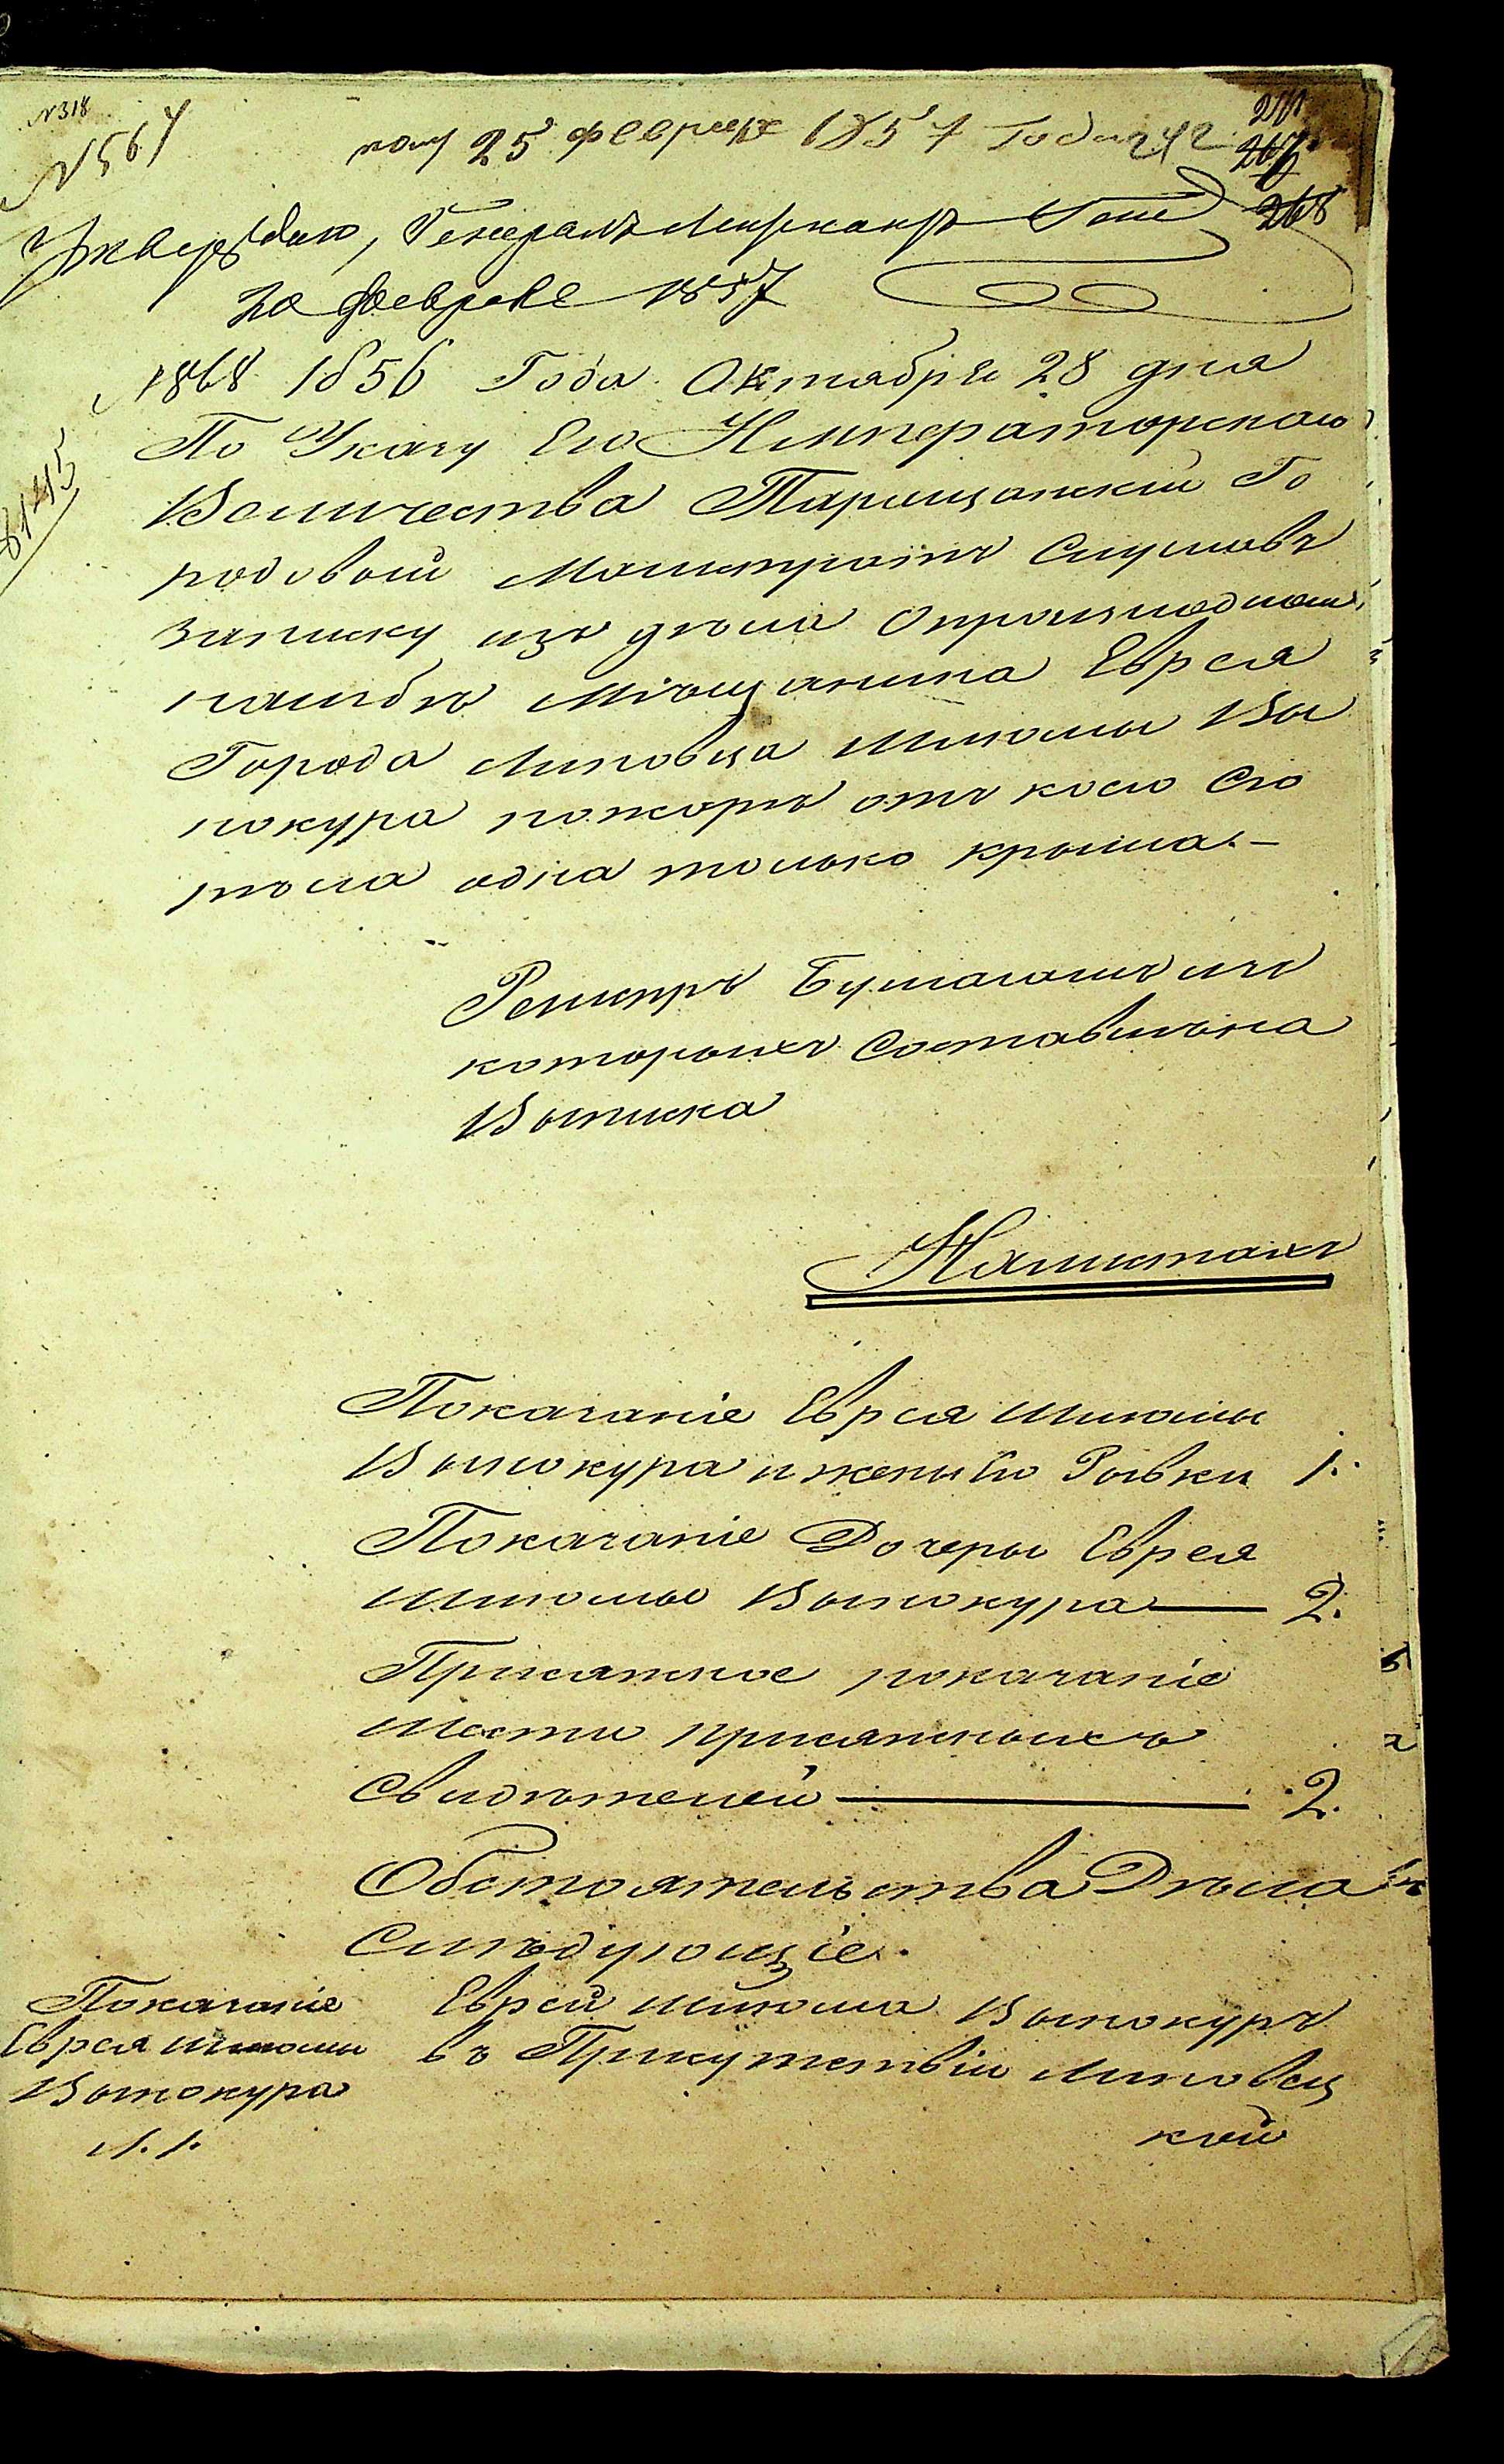 N318
N 567
пол 25 февраля 1857 Года 242
268
Утверждаю, Генералъ Лейтенантъ
20 Февраля 1857
1868 1856 Года Октября 28 дня
8145
По Указу Его Императорскаго
Величества Таращанскій Го
родовый Магистратъ Слушавъ
записку изъ дѣла О происшедшемъ
Мѣщанина Еврея
Города Липовца Шліомы Вы
нокура пожаръ отъ коего Сго
рѣла одна только крыша.—
Регистръ Бумагамъ изъ
которыхъ Составлѣна
Выписка
На листахъ
Показаніе Еврея Шліомы
Вынокура и жены Его Рывки 1.
Показаніе Дочеры Еврея
Шліомы Вынокура — 2.
Присяжное показаніе
шести присяжныхъ
Свидѣтелей — 2.
Обстоятельства Дѣла
Слѣдующіе.
Показаніе
Еврея Шліомы
Вынокура
л. 1.
Еврей Шліома Вынокуръ
въ Присутствіи Липовец
кой